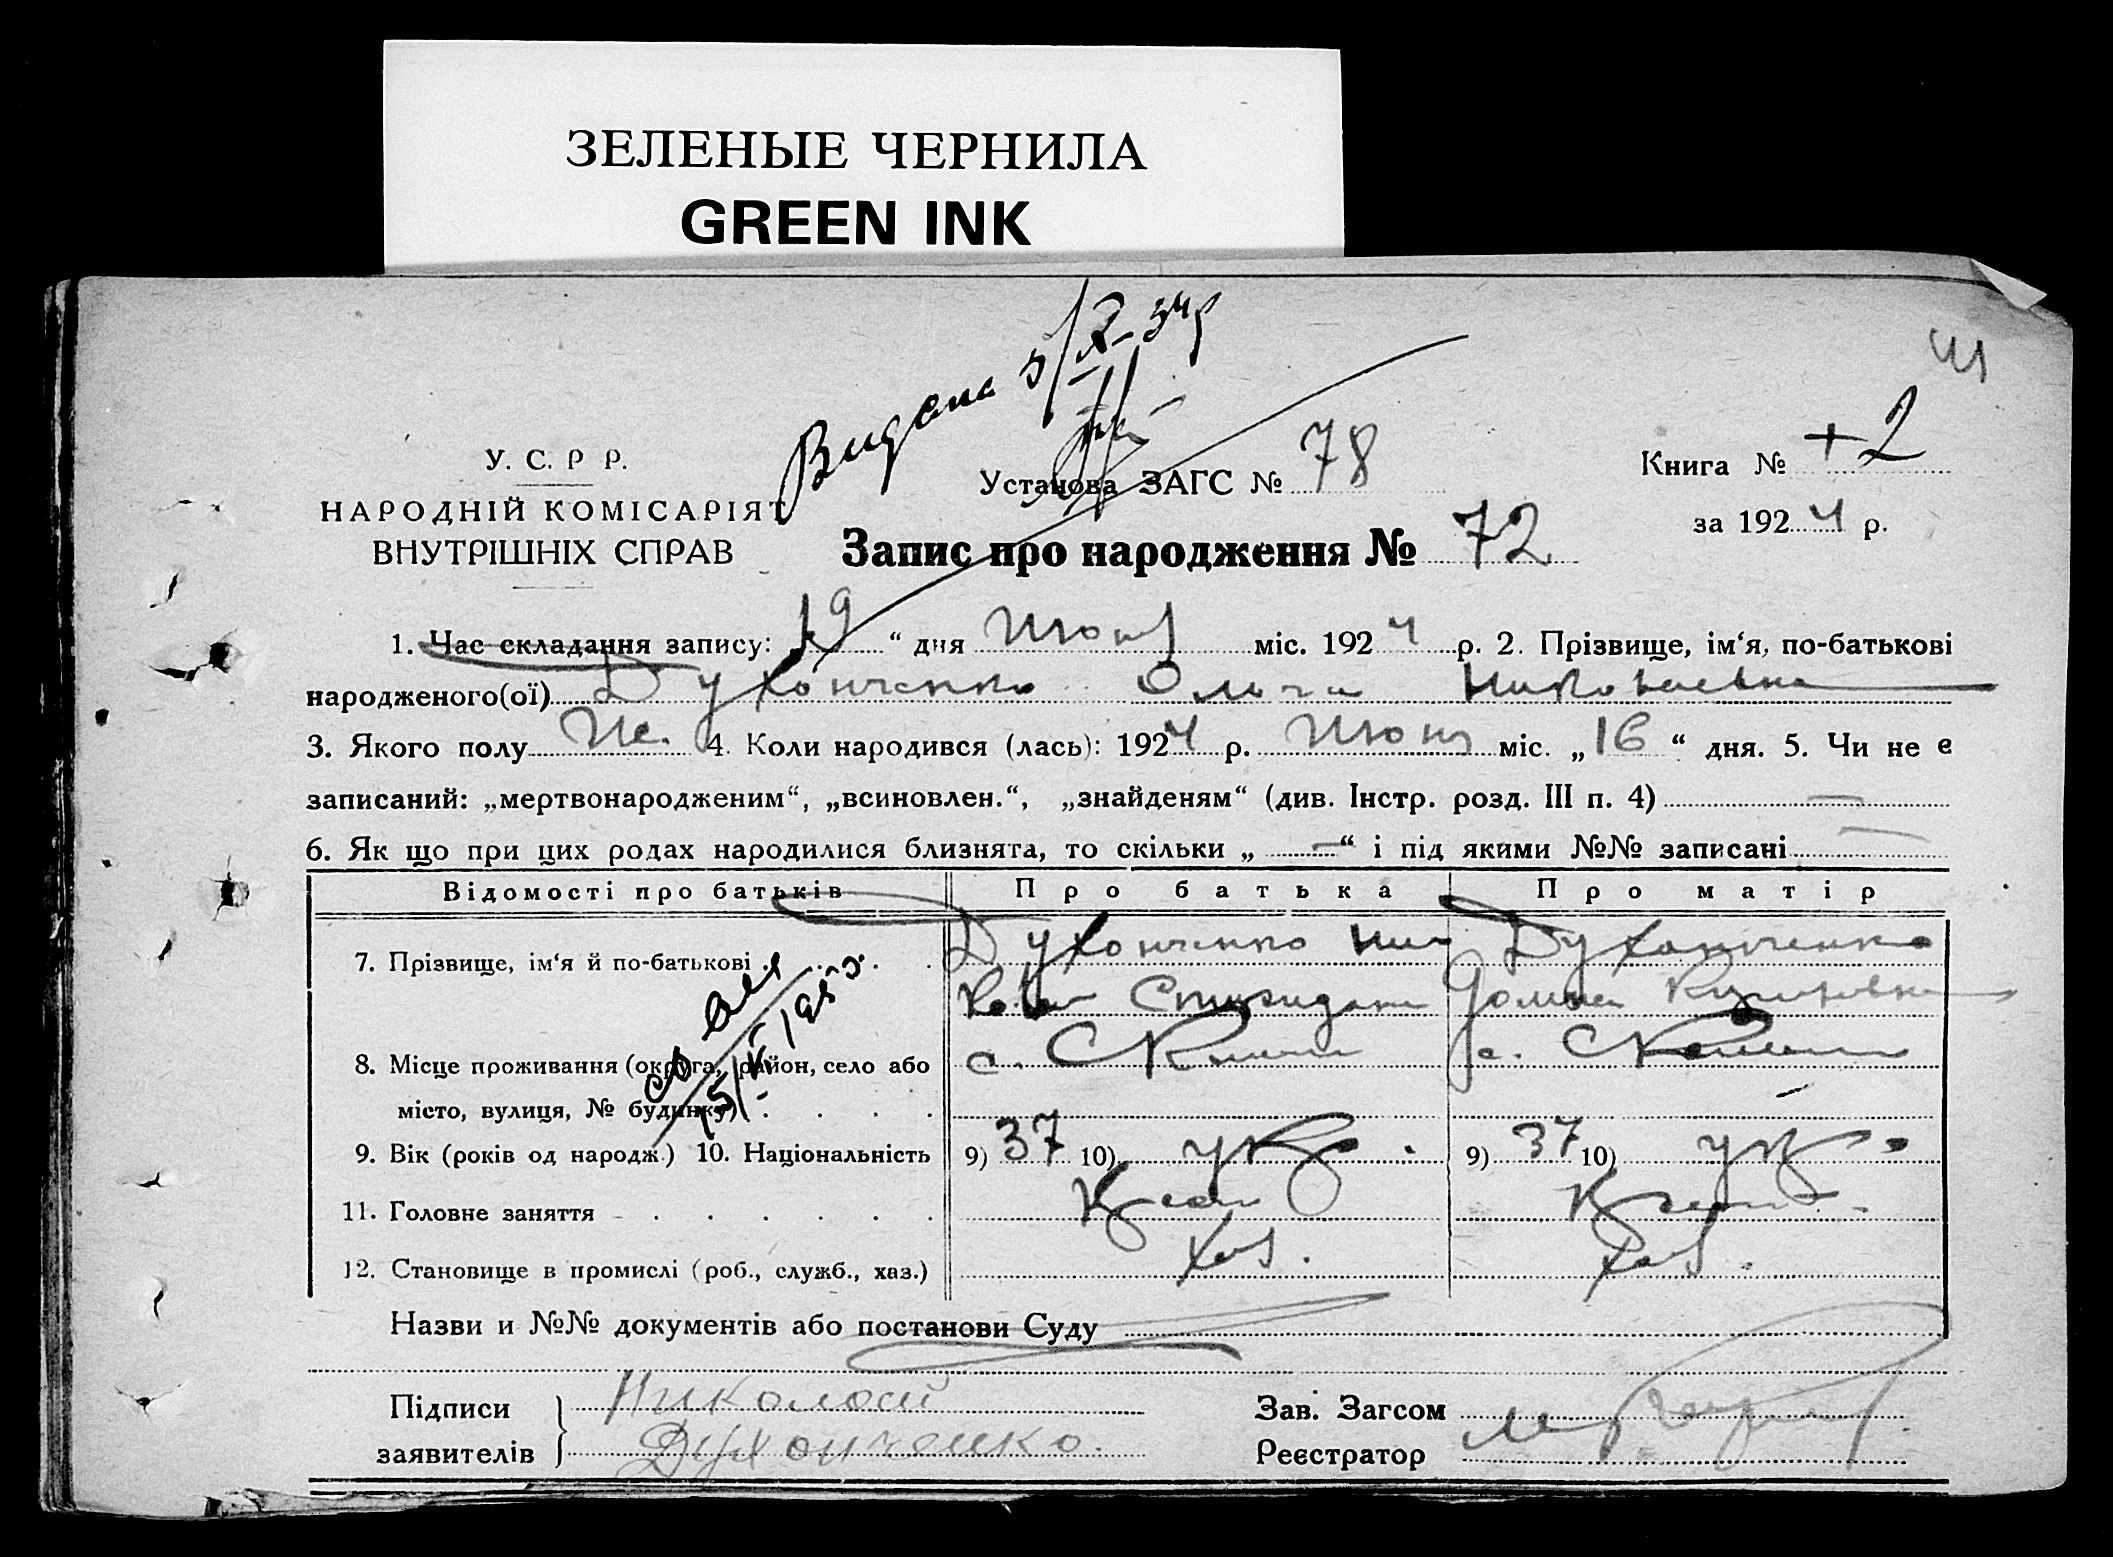 ЗЕЛЕНЫЕ ЧЕРНИЛА
GREEN INK
41
Видана 5/X-34р
У. С. Р Р.
НАРОДНІЙ КОМІСАРІЯТ
ВНУТРІШНІХ СПРАВ
Установа ЗАГС № 78
Книга № +2
за 1924 р.
Запис про народження № 72
1. Час складання запису: 19 “ дня Июня міс. 1924 р. 2. Прізвище, ім‘я, по-батькові
народженого(ої) Духонченко Ольга Николаевна
3. Якого полу Же. 4. Коли народився (лась): 1924 р. Июня міс. „ 16 “ дня. 5. Чи не є
записаний: „мертвонародженим“, „всиновлен.“, „знайденям“ (див. Інстр. розд. III п. 4) —
6. Як що при цих родах народилися близнята, то скільки „ — “ і під якими №№ записані —
Відомості про батьків Про батька Про матір
7. Прізвище, ім‘я й по-батькові Духонченко Ни Духонченко
колай Спиридон
8. Місце проживання (округа, район, село або с. с.
місто, вулиця, № будинку)
9. Вік (років од народж.) 10. Національність 9) 37 10) укр. 9) 37 10) укр.
11. Головне заняття
12. Становище в промислі (роб., служб., хаз.) Хаз. Хаз.
Назви и №№ документів або постанови Суду
Підписи Николай
заявителів Духонченко.
Зав. Загсом
Реєстратор